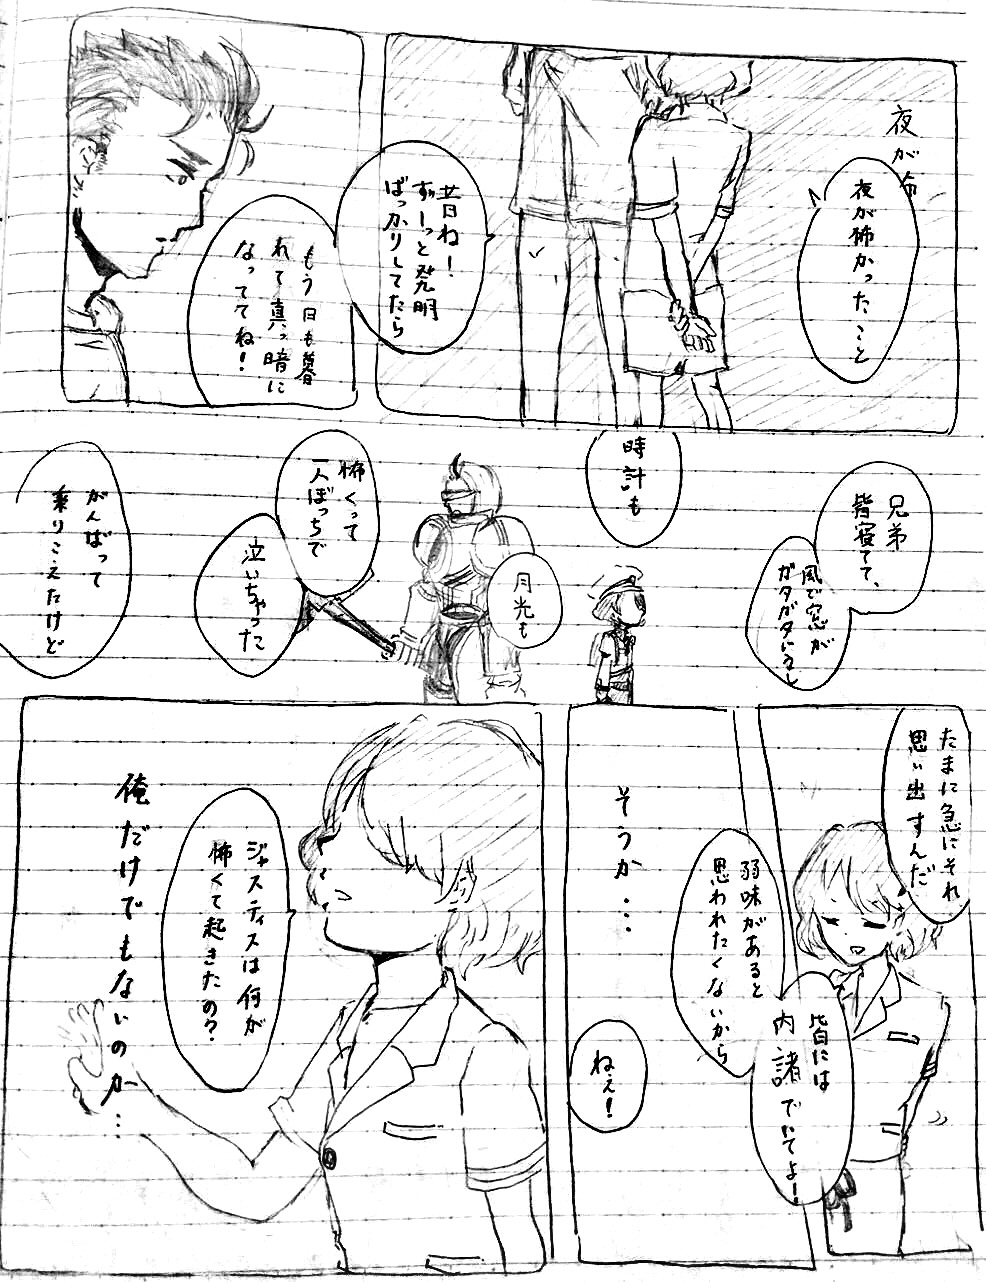 夜が怖
夜が怖かったこと
昔ね！
ずーっと発明
ばっかりしてたら
もう日も暮
れて真っ暗に
なっててね！
兄弟
皆寝てて、
風で窓が
ガタガタいうし
時計も
月光も
怖くって
一人ぼっちで
泣いちゃった
がんばって
乗りこえたけど
たまに急にそれ
思い出すんだ
皆には
内諸でいてよ！
弱味があると
思われたくないから
そうか…
ねぇ！
ジャスティスは何が
怖くて起きたの？
俺だけでもないのか…